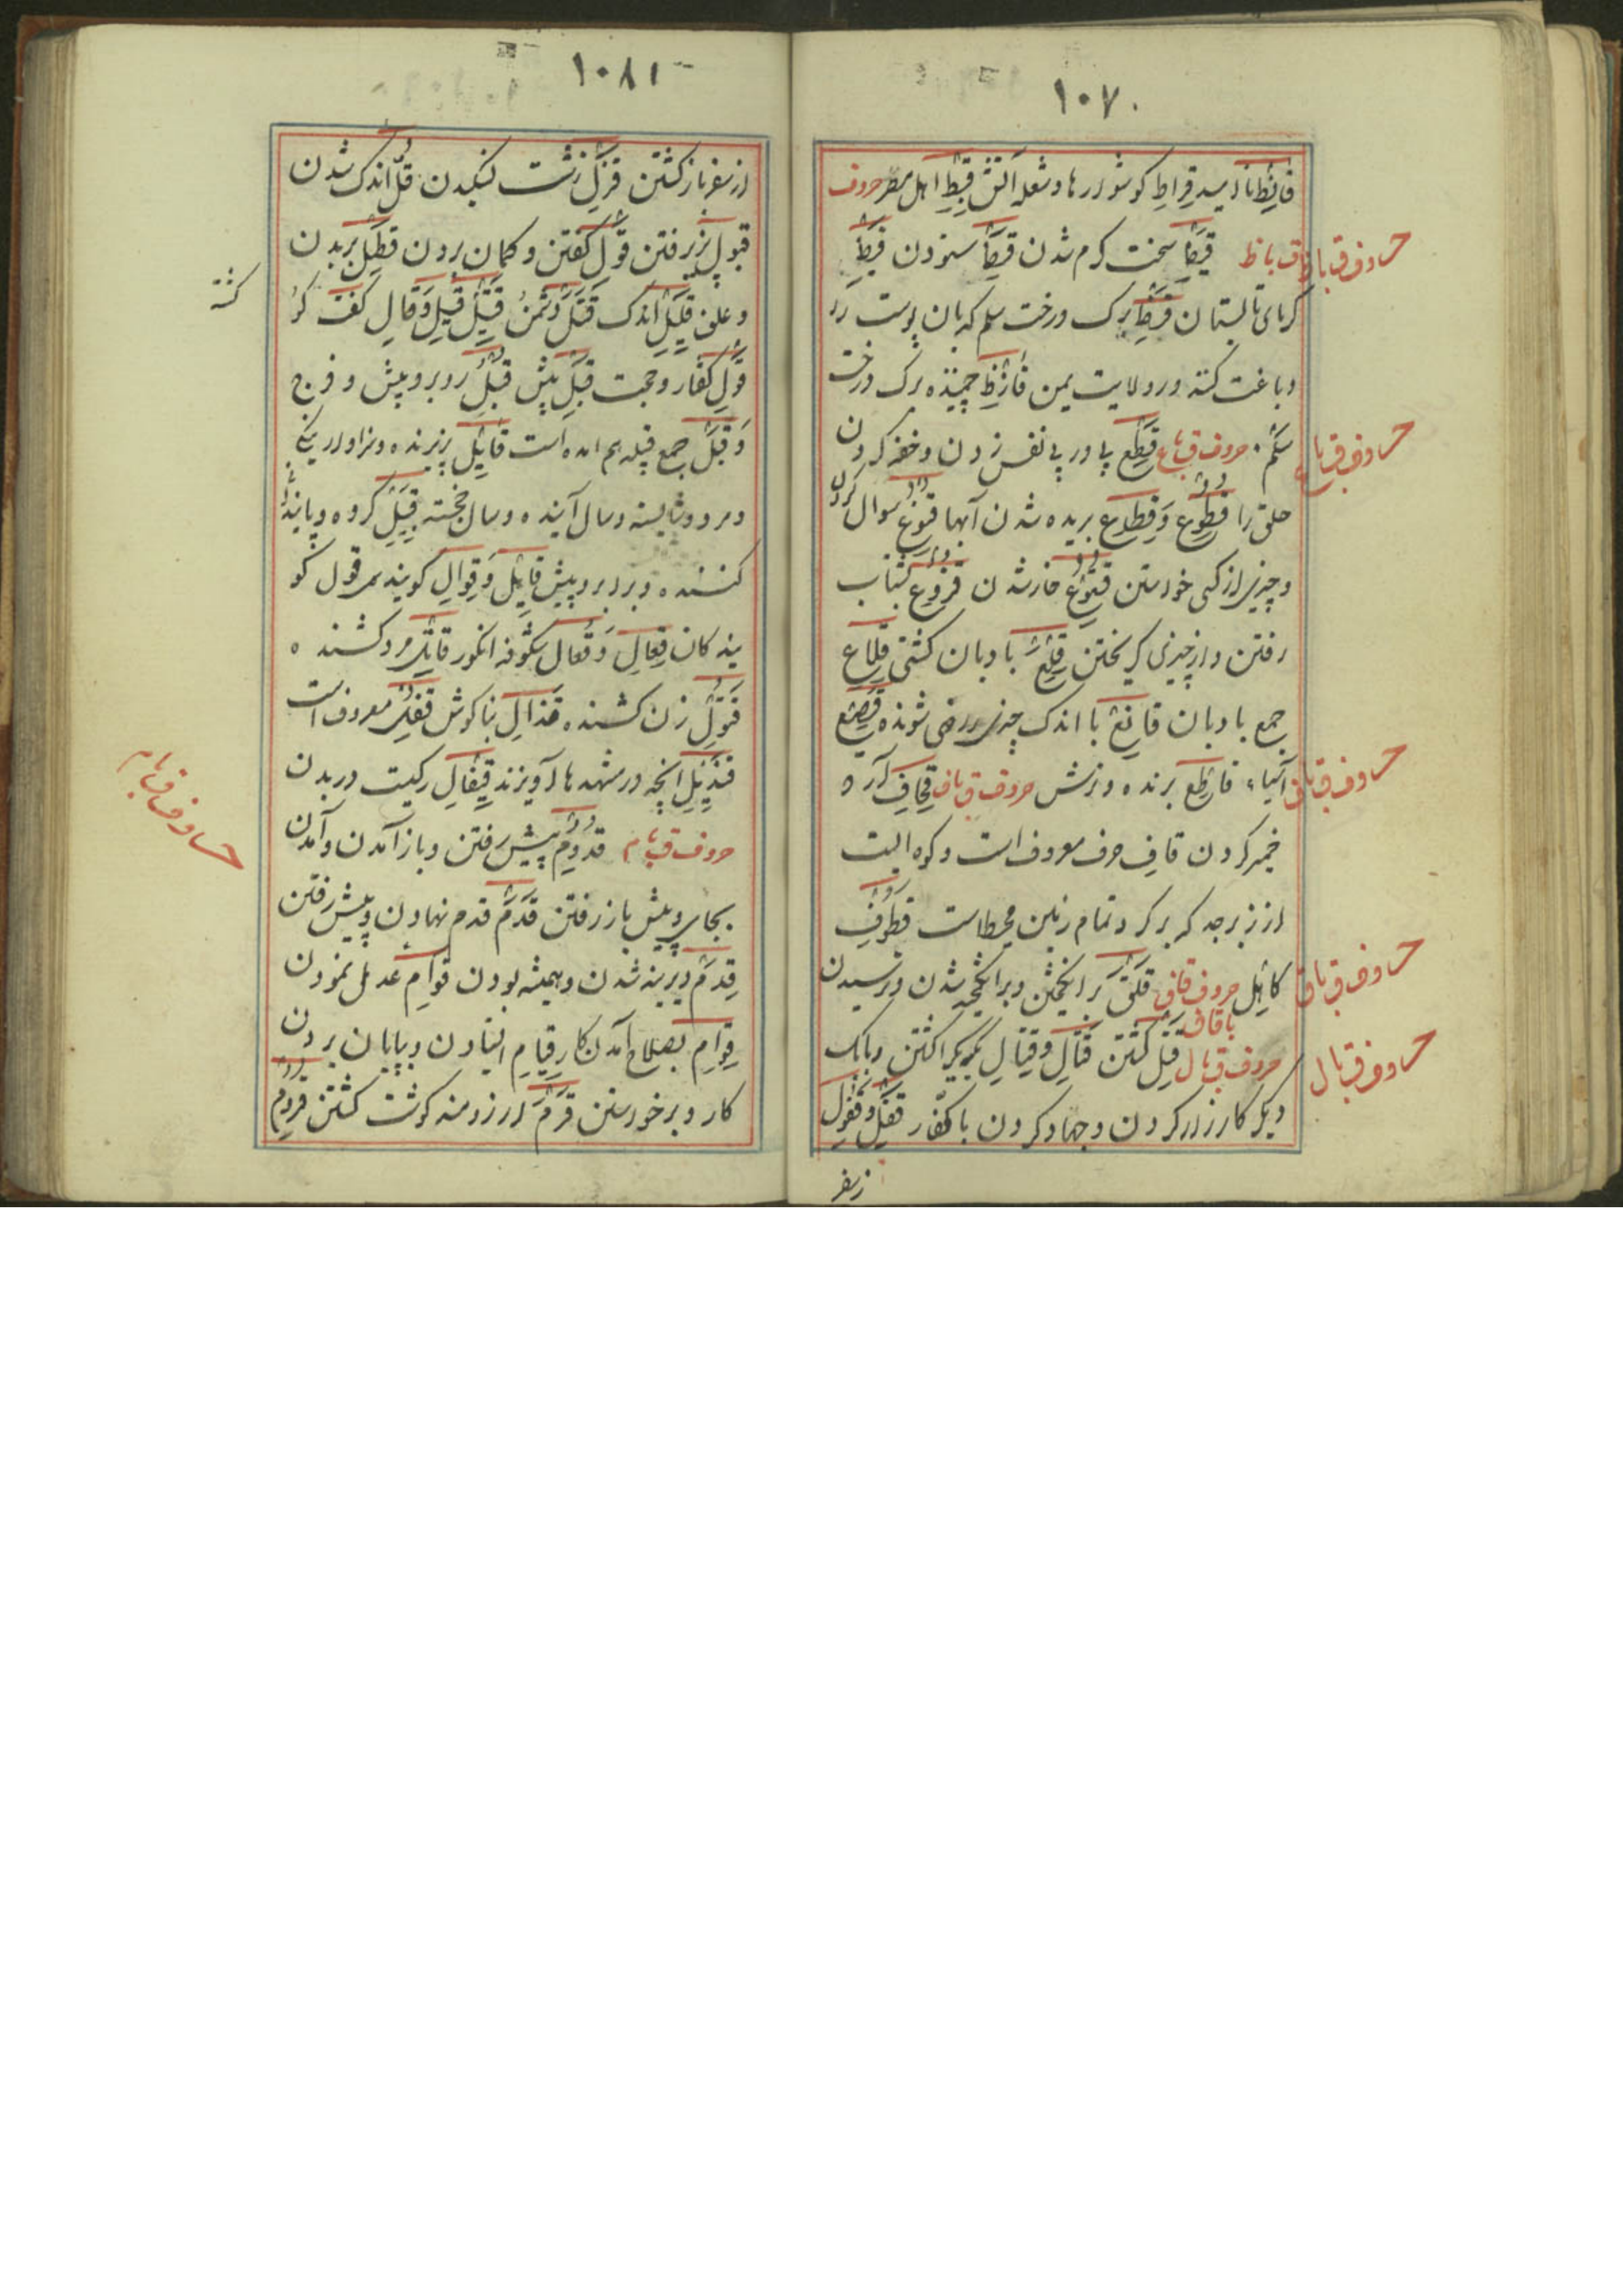 ۱۰۷۰
قانِط نا امید قِراط کوشوارها و شعله آتش قِبط اهل مصر حروف
حروف ق با ظ
ق با ظ قیظ سخت کرم شدن قیظ ستودن قیظ
کرمای تابستان قرظ برک درخت سلم که بان پوست را
دباغت کنند در ولایت یمن قارِظ چیننده برک درخت
حروف ق با ع
سلم حروف ق با ع قطع پا در پی نفس زدن و خفه کردن
حلق را قطوع و قطاع بریده شدن آبها قنوع سوال کردن
و چیزی از کسی خواستن قتوع خار شدن قزوع شتاب
رفتن و از چیزی کریختن قلع بادبان کشتی قلاع
جمع بادبان قانع با اندک چیزی راضی شونده
حروف ق با ف
آسیاء قاطِع برنده و ترش حروف ق با ف قحاف آرد
خمیر کردن قاف حرف معروف است و کوه ایست
از زبرجد که بر کرد تمام زمین محیط است قطوف
حروف ق با ق
کاهل حروف قاف با قاف قلق بر انکیختن و بر انکیخته شدن و ترسیدن
حروف ق با ل
حروف ق با ل قتل کشتن قتال و قیتال یکدیکر را کشتن و با یک
دیکر کارزار کردن و جهاد کردن با کفار قفل و قفول
از سفر
۱۰۸۱
از سفر باز کشتن قزل زشت لنکیدن قل اندک شدن
قبول پذیرفتن قول کفتن و کمان بردن قطل بریدن
و علف قلیل اندک قتل دشمن قتیل قیل و قال کفت کو
کشته
قول کفتار و حجت قبل پیش قبل روبرو و پیش و فرج
و قبل جمع قبله هم امده است قابِل پذیرنده و سزاوار نیکی
و مرد و شایسته و سال آینده و سال خجسته قبیل کروه و پایندا
کننده و برابر و پیش قایِل و قوال کوینده قول کو
یند کان قِعال و قُعال شکوفه انکور قاتل مرد کشنده
قتول زن کشنده قذال بناکوش قفل معروف است
قندیل انچه در مشهدها آویزند قیفال رکیست در بدن
حروف ق با م
حروف ق با م قدوم پیش رفتن و باز آمدن و آمدن
بجای و پیش باز رفتن قدم قدم نهادن و پیش رفتن
قِدم دیرینه شدن و همیشه بودن قوام عدل نمودن
قِوام بصلاح آمدن کار قیام ایستادن و بپایان بردن
کار و برخواستن قرم ارزومند کوشت کشتن قروم